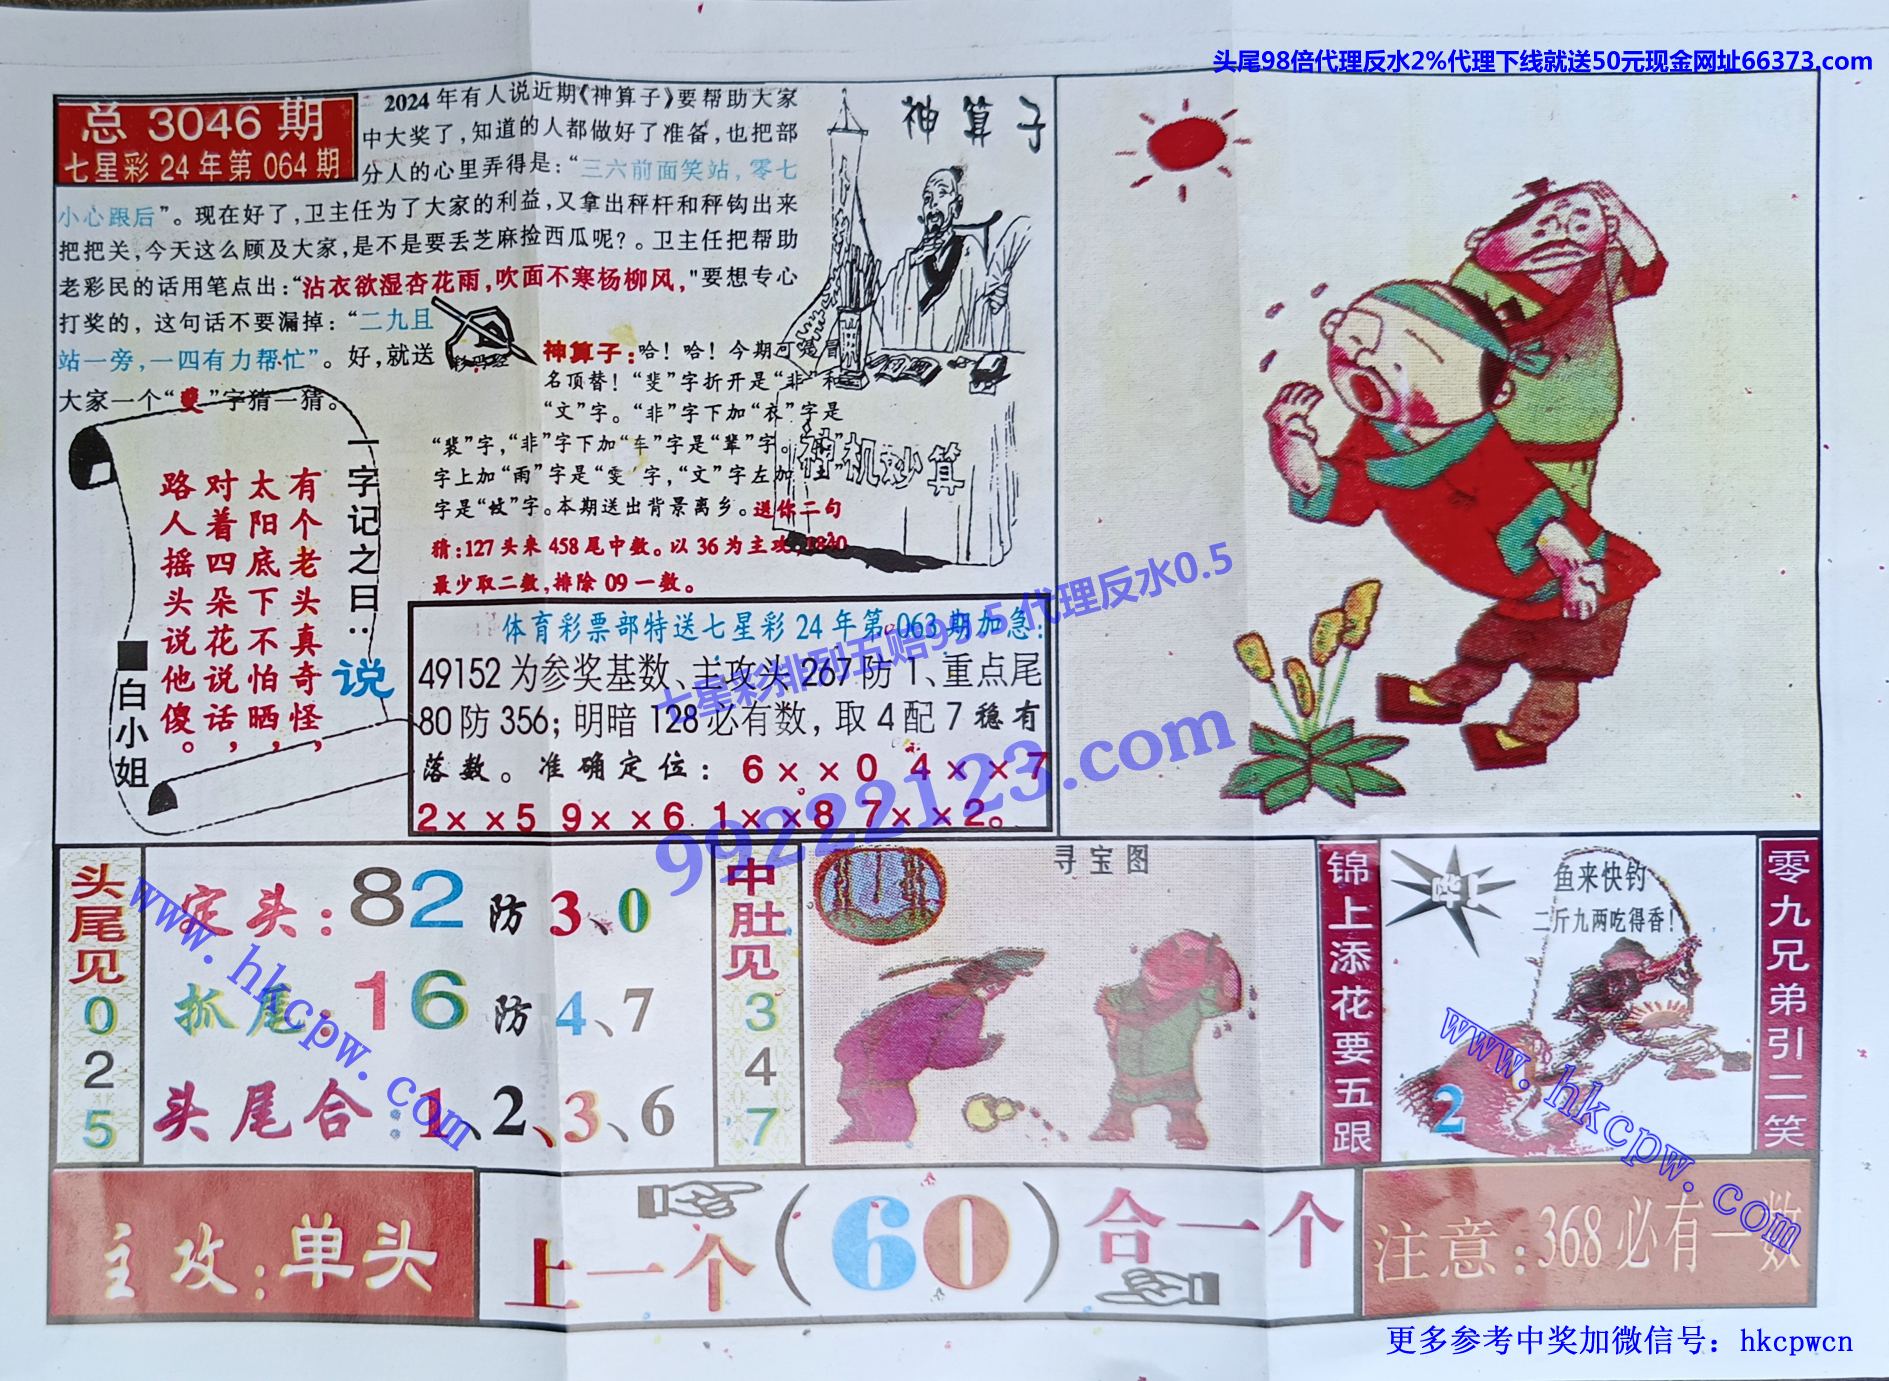 头尾98倍代理反水2%代理下线就送50元现金网址66373.com
总 3046 期
七星彩 24 年第 064 期
2024 年有人说近期《神算子》要帮助大家
中大奖了,知道的人都做好了准备,也把部
分人的心里弄得是:“三六前面笑站,零七
小心跟后”。现在好了,卫主任为了大家的利益,又拿出秤杆和秤钩出来
把把关,今天这么顾及大家,是不是要丢芝麻捡西瓜呢?。卫主任把帮助
老彩民的话用笔点出:“沾衣欲湿杏花雨,吹面不寒杨柳风,"要想专心
打奖的,这句话不要漏掉:“二九且
站一旁,一四有力帮忙”。好,就送
大家一个“斐”字猜一猜。
神算子
神机妙算
神算子:哈!哈!今期可是冒
名顶替!“斐”字折开是“非”和
“文”字。“非”字下加“衣”字是
“裴”字,“非”字下加“车”字是“辈”字。
字上加“雨”字是“雯”字,“文”字左加“土”
字是“坟”字。本期送出背景离乡。送你二句
猜:127头来 458 尾中数。以 36 为主攻,1840
最少取二数,排除 09 一数。
一字记之曰:说
有个老头真奇怪,
太阳底下不怕晒,
对着四朵花说话,
路人摇头说他傻。
■白小姐
体育彩票部特送七星彩 24 年第 063 期加急:
49152 为参奖基数、主攻头 267 防 1、重点尾
80 防 356;明暗 128 必有数,取 4 配 7 稳有
落数。准确定位:6××0 4××7
2××5 9××6 1××8 7××2。
七星彩排列五赔99.5 代理反水0.5
99222123.com
头尾见
0
2
5
定头:82 防 3、0
抓尾:16 防 4、7
头尾合:1、2、3、6
www.hkcpw.com
中肚见
3
4
7
寻宝图
锦上添花要五跟
哗!
鱼来快钓
二斤九两吃得香!
2
零九兄弟引二笑
www.hkcpw.com
主攻:单头
上一个(60)合一个
注意:368必有一数
更多参考中奖加微信号：hkcpwcn